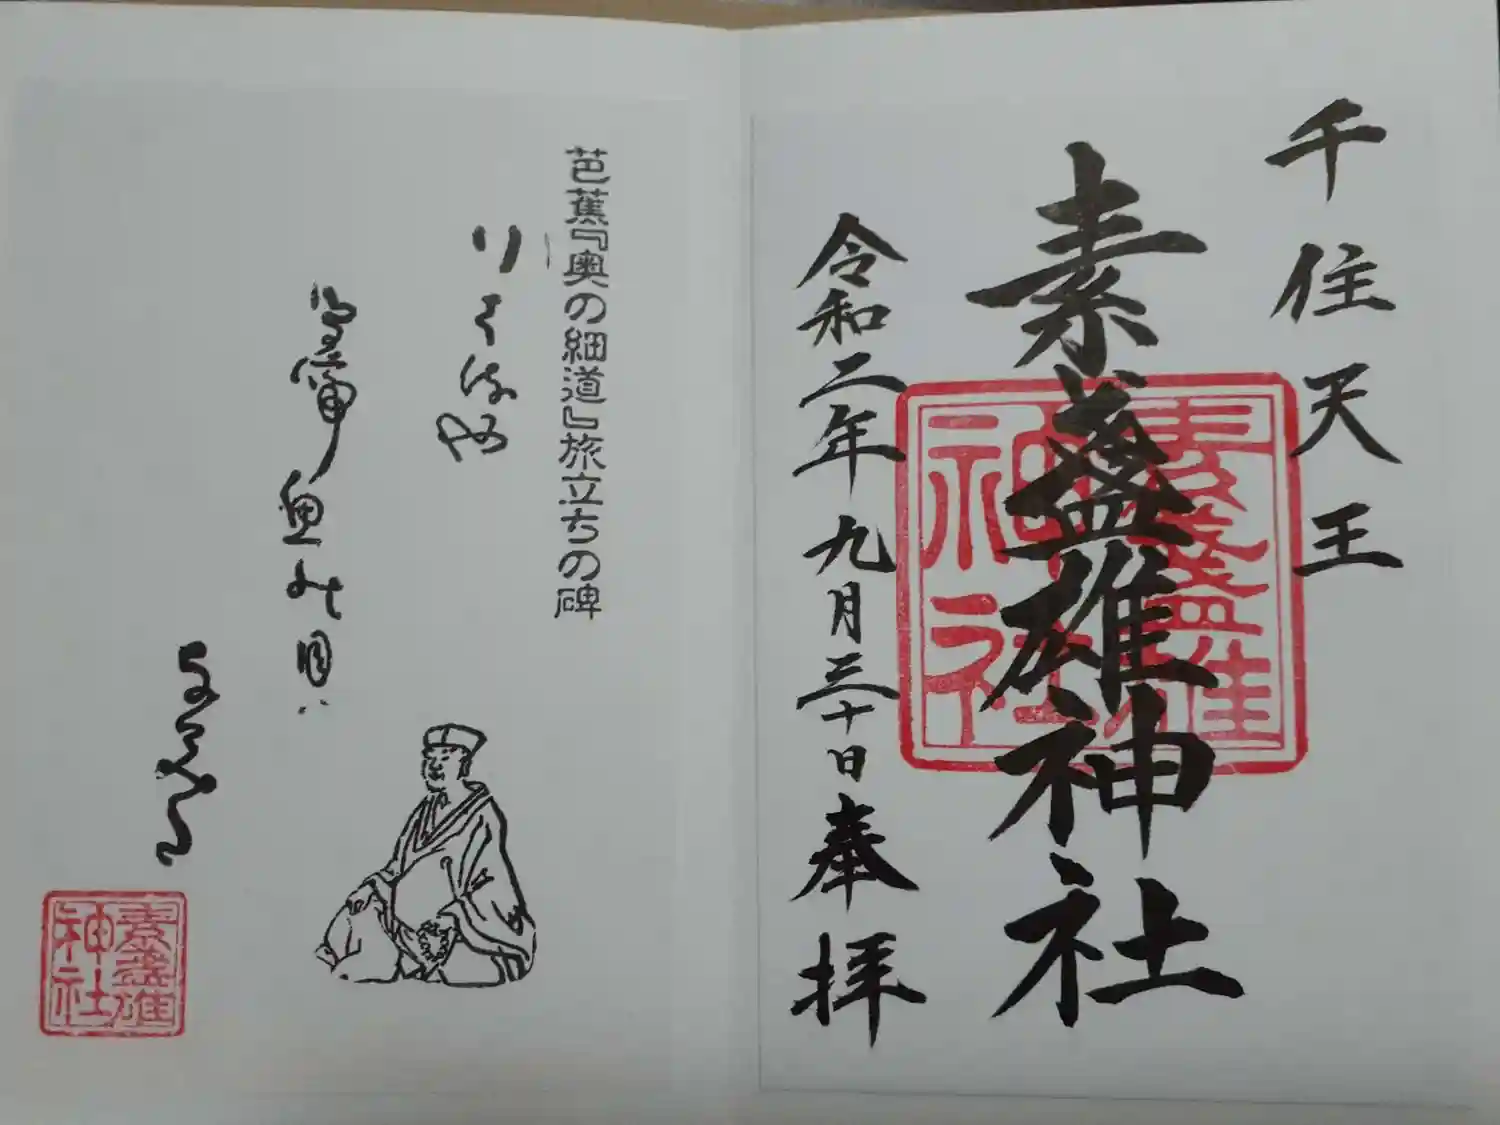 千住天王
素盞雄神社
素盞雄神社
令和二年九月三十日奉拝
芭蕉『奥の細道』旅立ちの碑
鳥啼魚の目ハ
素盞雄神社